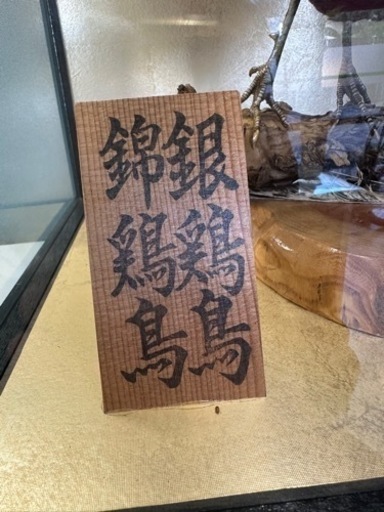 銀鶏鳥
錦鶏鳥